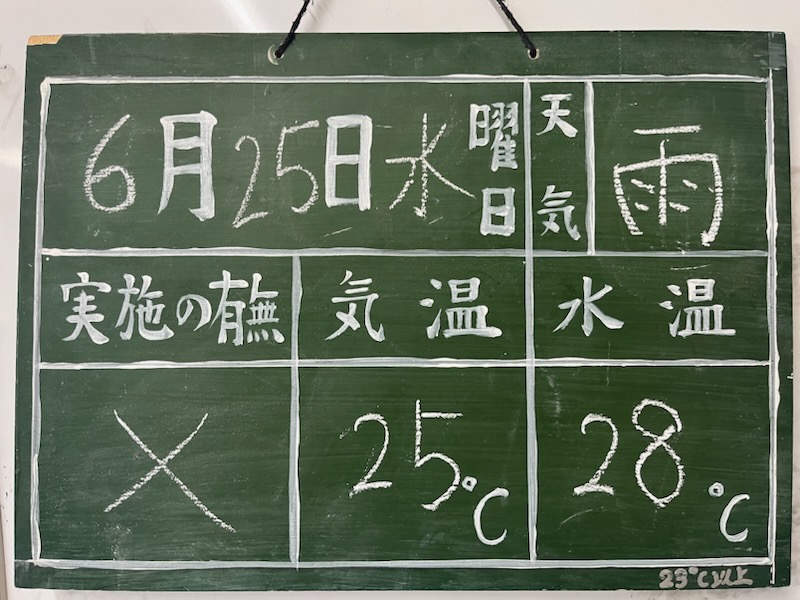 6月25日水曜日 天気 雨
実施の有無 気温 水温
× 25℃ 28℃
23℃以上